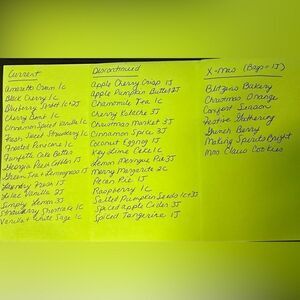 Current
Amaretto Cream 1C
Black Cherry 1C
Blueberry
Cherry
Cinnamon Sweet Vanilla 1C
Fresh Sweet Strawberry 1C
Frosted Pancake 1C
Funfetti Cake Batter
Georgia Peach
Green Tea + Lemongrass 1J
Laundry Fresh 1J
Vanilla 2J
Simply Lemon 3J
Strawberry Shortcake 1C
Vanilla + White Sage 1C
Discontinued
Apple Cherry Crisp 1J
Apple Pumpkin Butter 2J
Chamomile Tea 1C
Cherry Kolache 3J
Christmas Market 3J
Cinnamon Spice 3J
Coconut Eggnog 1J
Key Lime Cake 1C
Lemon Meringue Pie 3J
Merry Margarita 2C
Pecan Pie 1J
Raspberry 1C
Salted Pumpkin Seeds 1C+3J
Spiced Apple Cider 3J
Spiced Tangerine 1J
X-Mas (Bxp = 1J)
Blitzens Bakery
Christmas Orange
Comfort Season
Festive Gathering
Grinch Berry
Making Spirits Bright
Mrs Claus Cookies